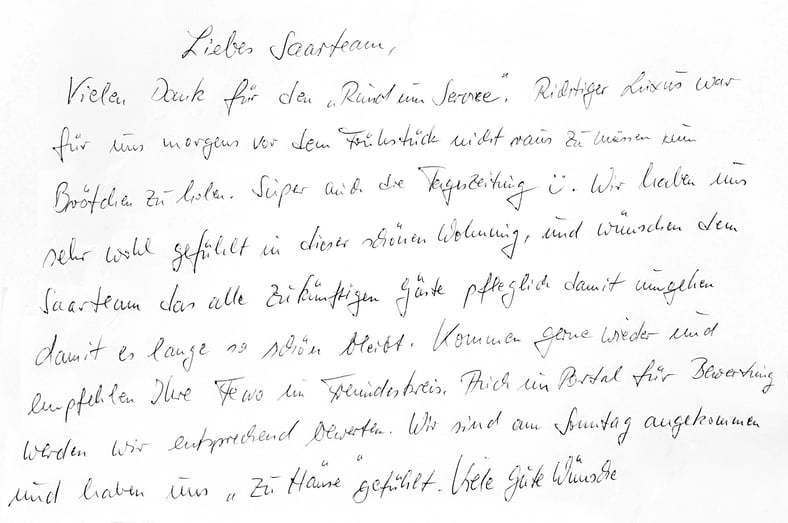 Liebes Saarteam,
Vielen Dank für den „Rund um Service". Richtiger Luxus war
für uns morgens vor dem Frühstück nicht raus zu müssen um
Brötchen zu holen. Super auch die Tageszeitung ☺. Wir haben uns
sehr wohl gefühlt in dieser schönen Wohnung, und wünschen dem
Saarteam das alle zukünftigen Gäste pfleglich damit umgehen
damit es lange so schön bleibt. Kommen gerne wieder und
empfehlen Ihre Fewo im Freundeskreis. Auch im Portal für Bewertung
werden wir entsprechend bewerten. Wir sind am Sonntag angekommen
und haben uns „Zu Hause" gefühlt. Viele Gute Wünsche